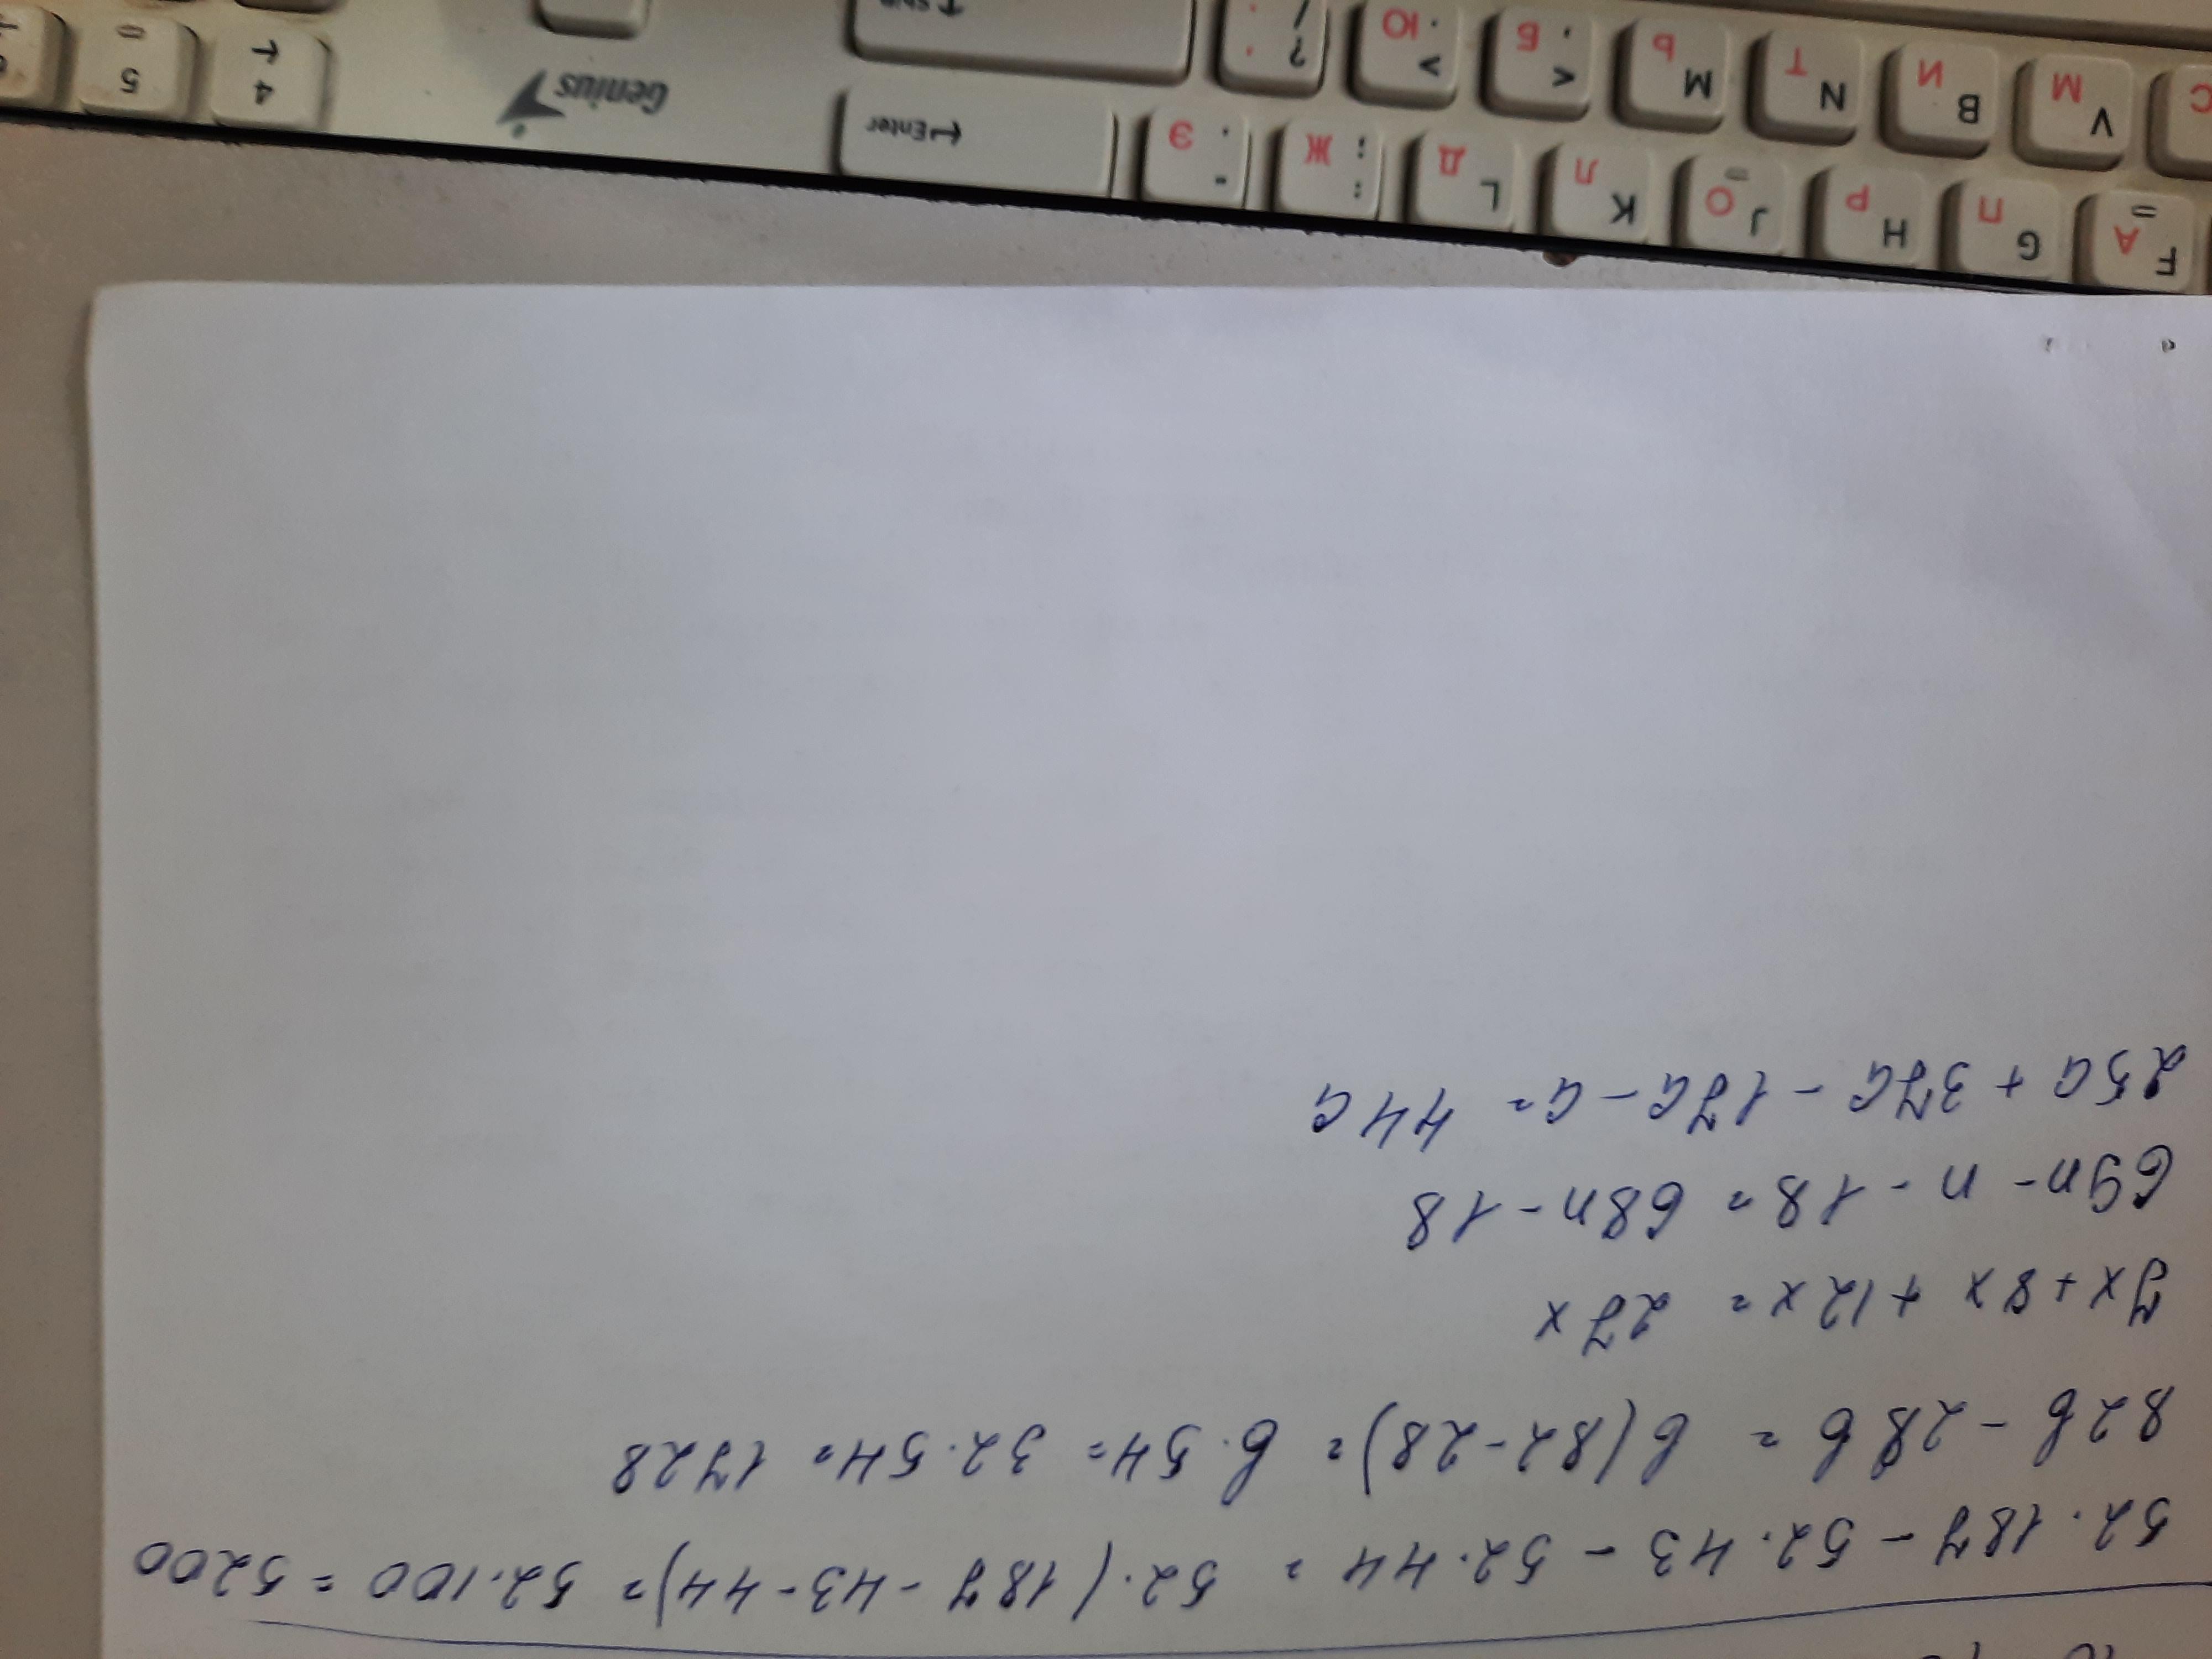 52·187 - 52·43 - 52·44 = 52·(187-43-44) = 52·100 = 5200
82b - 28b = b(82-28) = b·54 = 32·54 = 1728
7x+8x+12x = 27x
69n - n - 18 = 68n - 18
25a + 37a - 17a - a = 44a
F А G П H Р J О K Л L Д : ; Ж " ' Э ←Enter
C V М B И N Т M Ь < , Б > . Ю ? / . ↑ Shift
Genius
4 ← 5